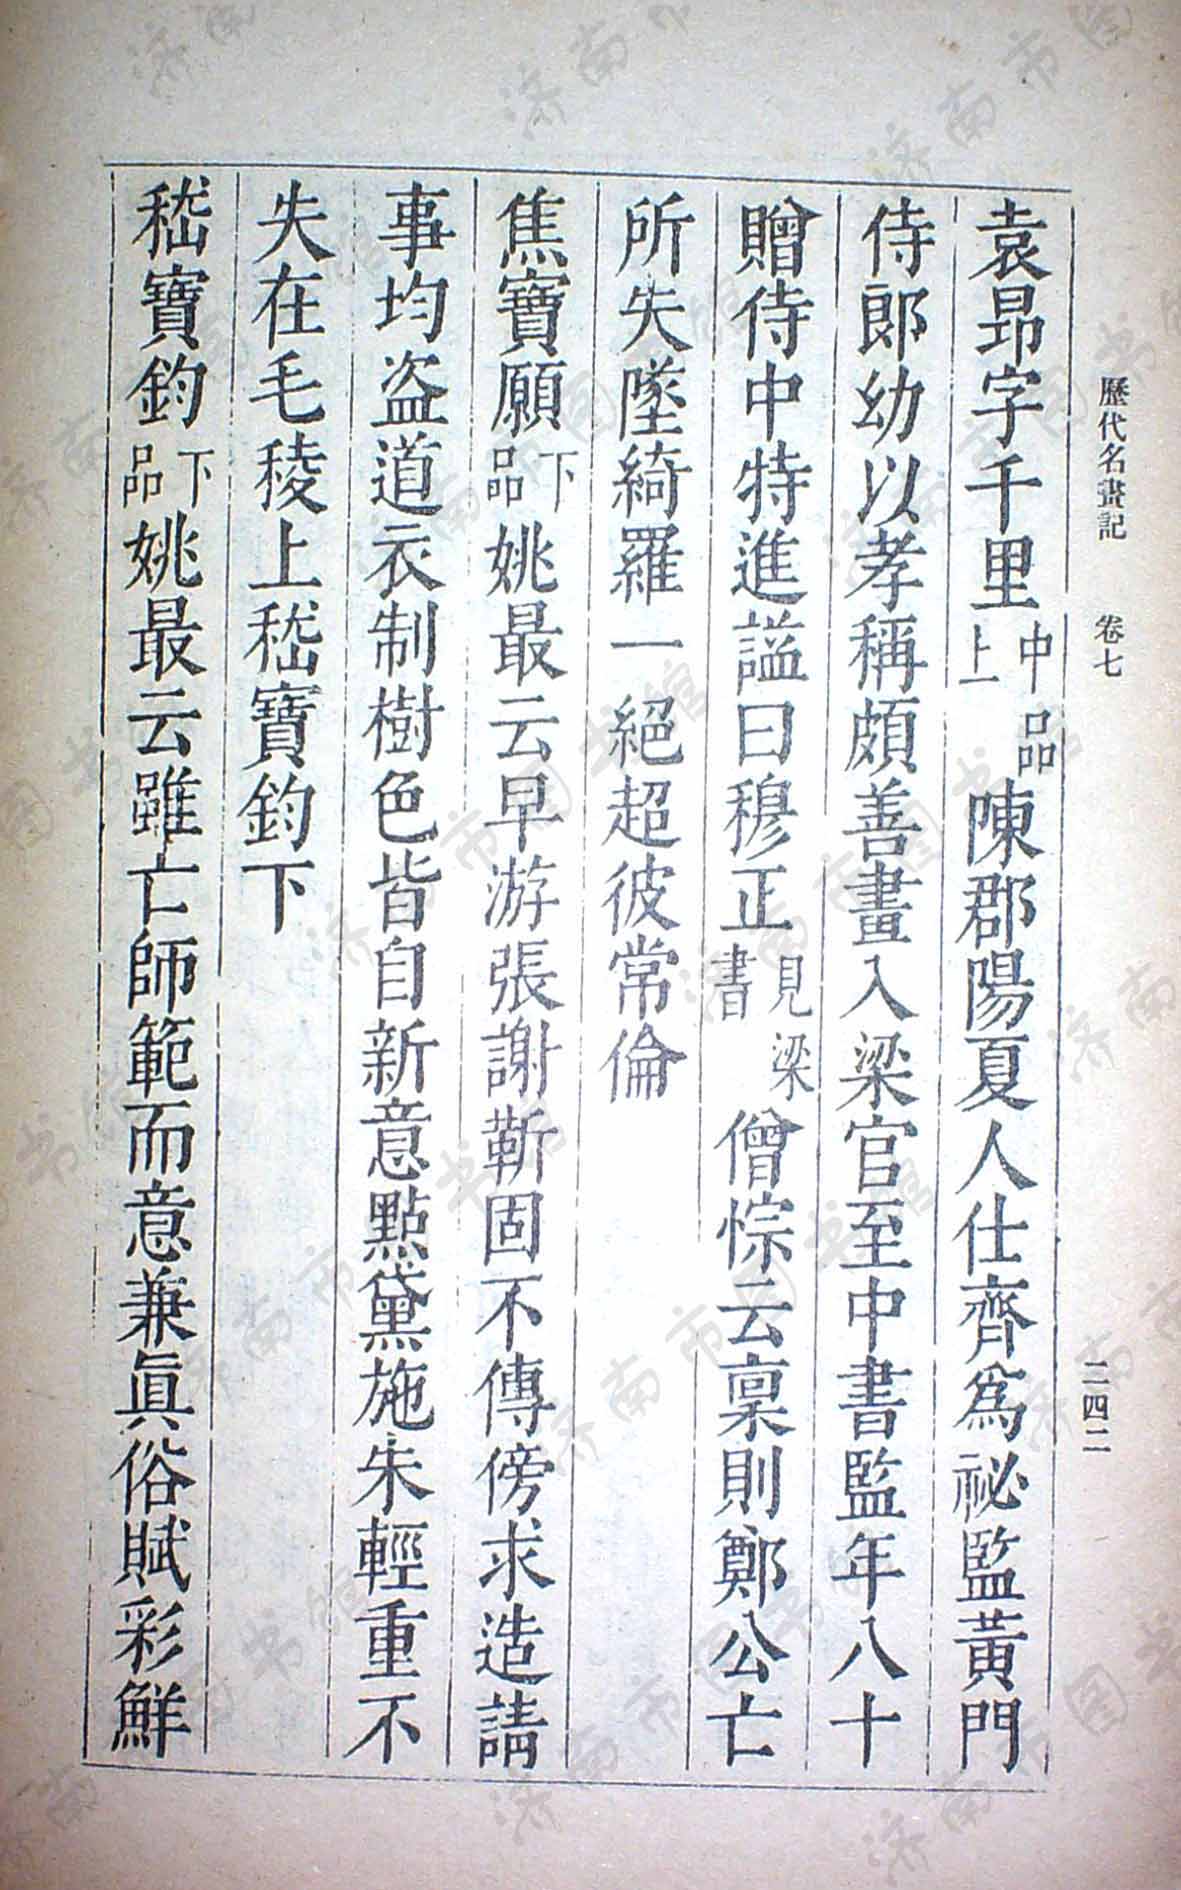 歷代名畫記　卷七　二四二
袁昻字千里中品上陳郡陽夏人仕齊爲祕監黃門
侍郎幼以孝稱頗善畫入梁官至中書監年八十
贈侍中特進諡曰穆正見梁書僧悰云稟則鄭公亡
所失墜綺羅一絕超彼常倫
焦寶願下品姚最云早游張謝靳固不傳傍求造請
事均盜道衣制樹色皆自新意點黛施朱輕重不
失在毛稜上嵇寶鈞下
嵇寶鈞下品姚最云雖亡師範而意兼眞俗賦彩鮮
济南市图书馆